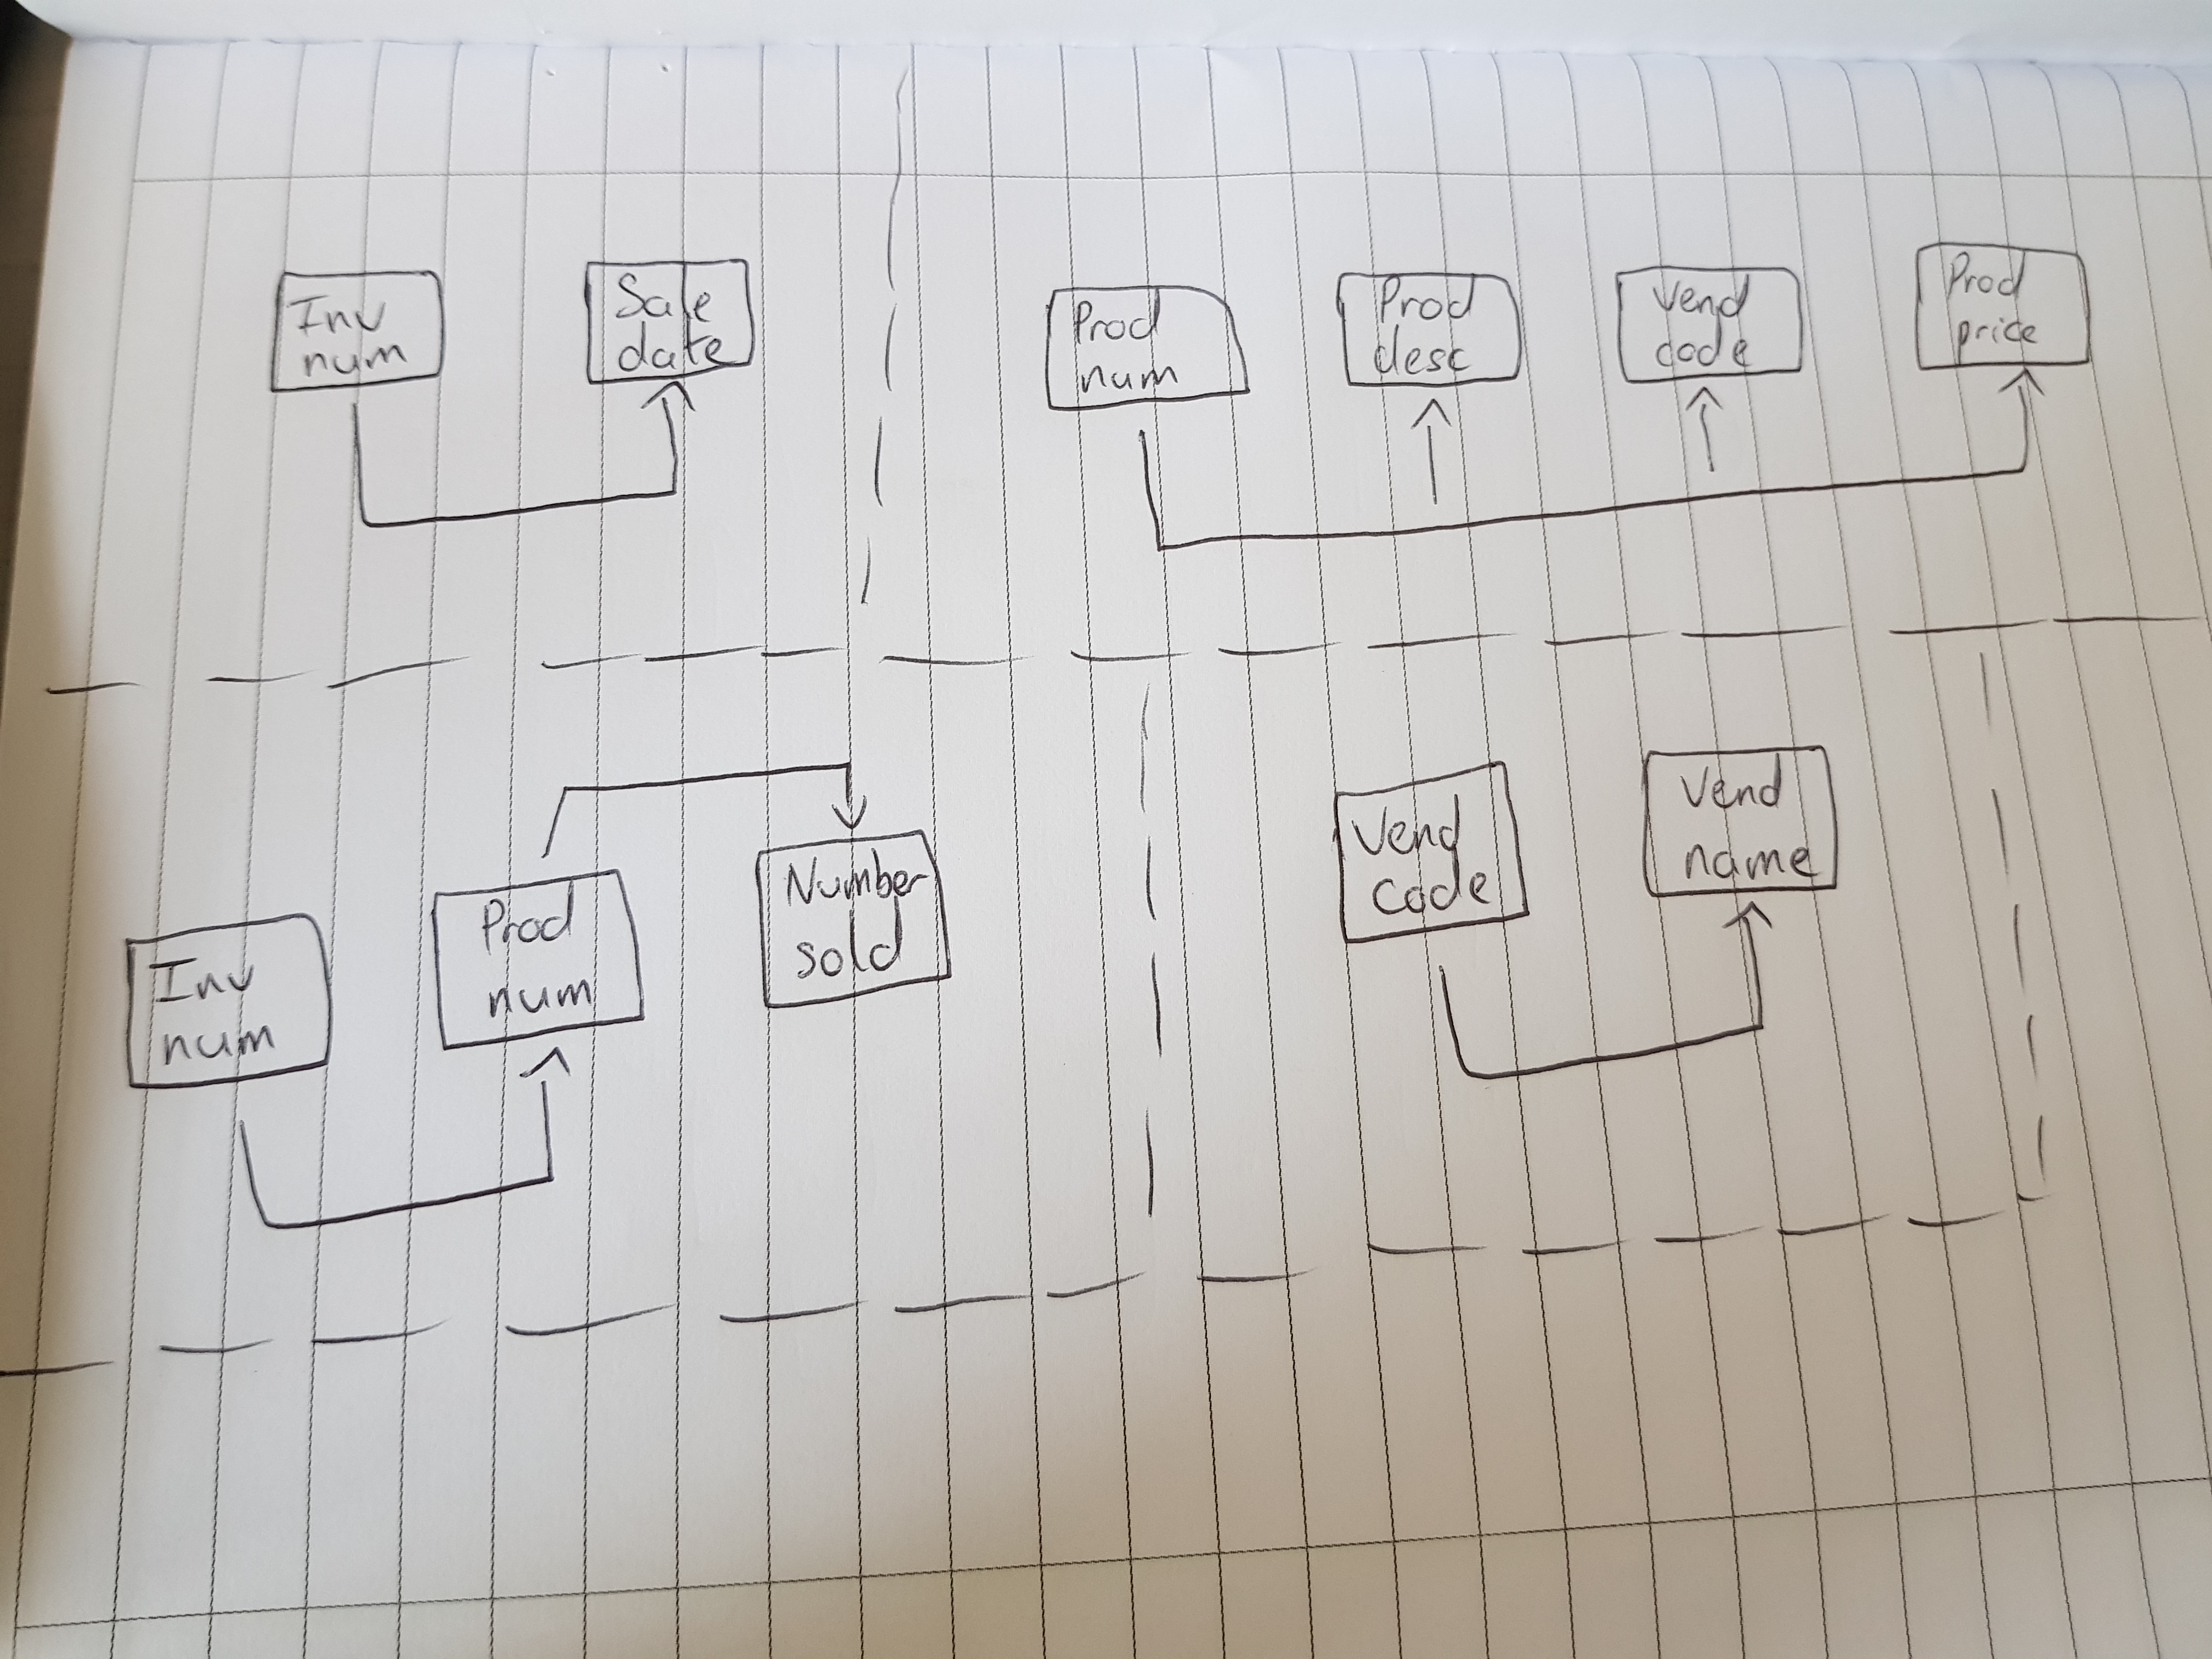 Inv
num
Sale
date
Prod
num
Prod
desc
Vend
code
Prod
price
Inv
num
Prod
num
Number
sold
Vend
Code
Vend
name